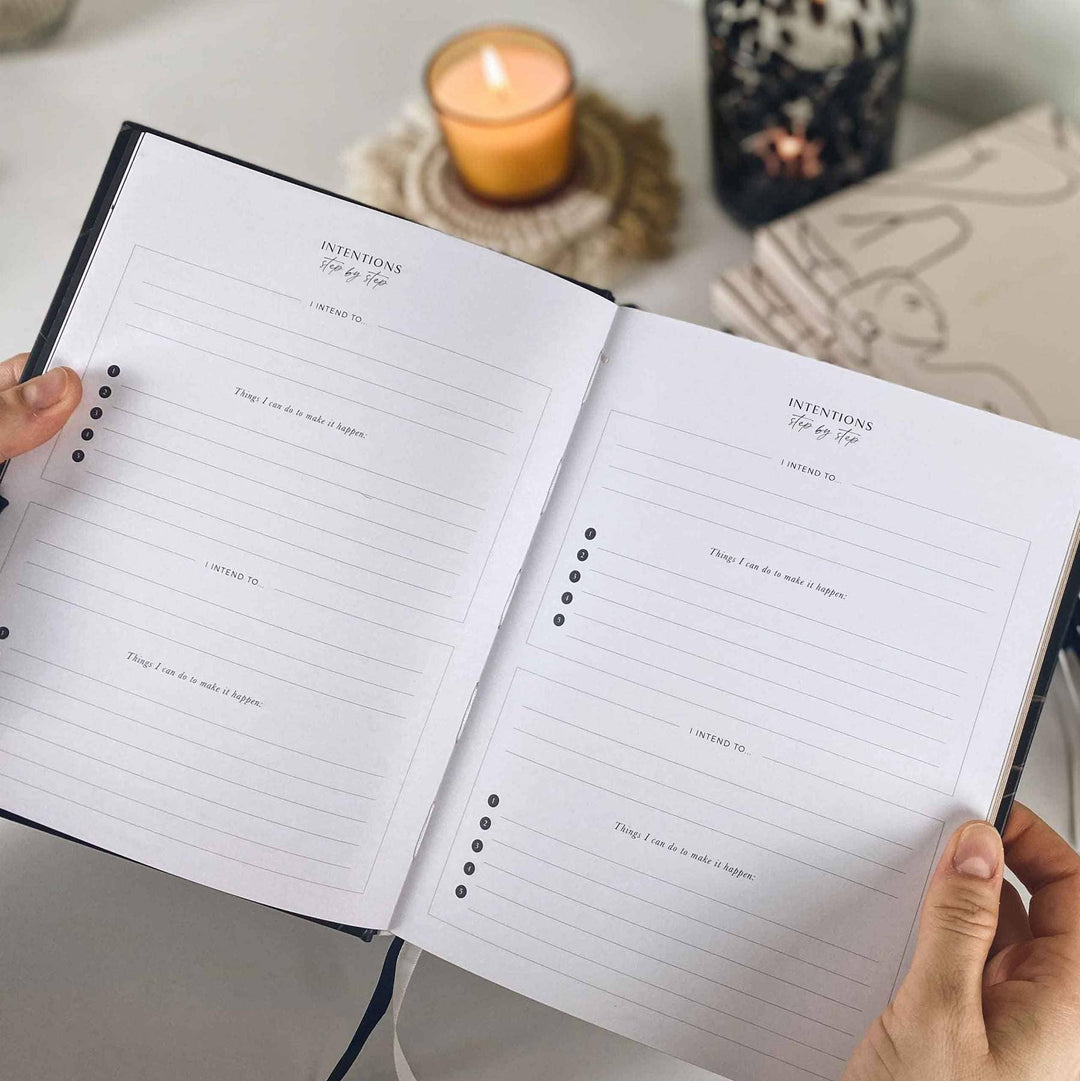 INTENTIONS
step by step
I INTEND TO..
Things I can do to make it happen:
1
2
3
4
5
I INTEND TO..
Things I can do to make it happen:
1
INTENTIONS
step by step
I INTEND TO..
Things I can do to make it happen:
1
2
3
4
5
I INTEND TO..
Things I can do to make it happen:
1
2
3
4
5